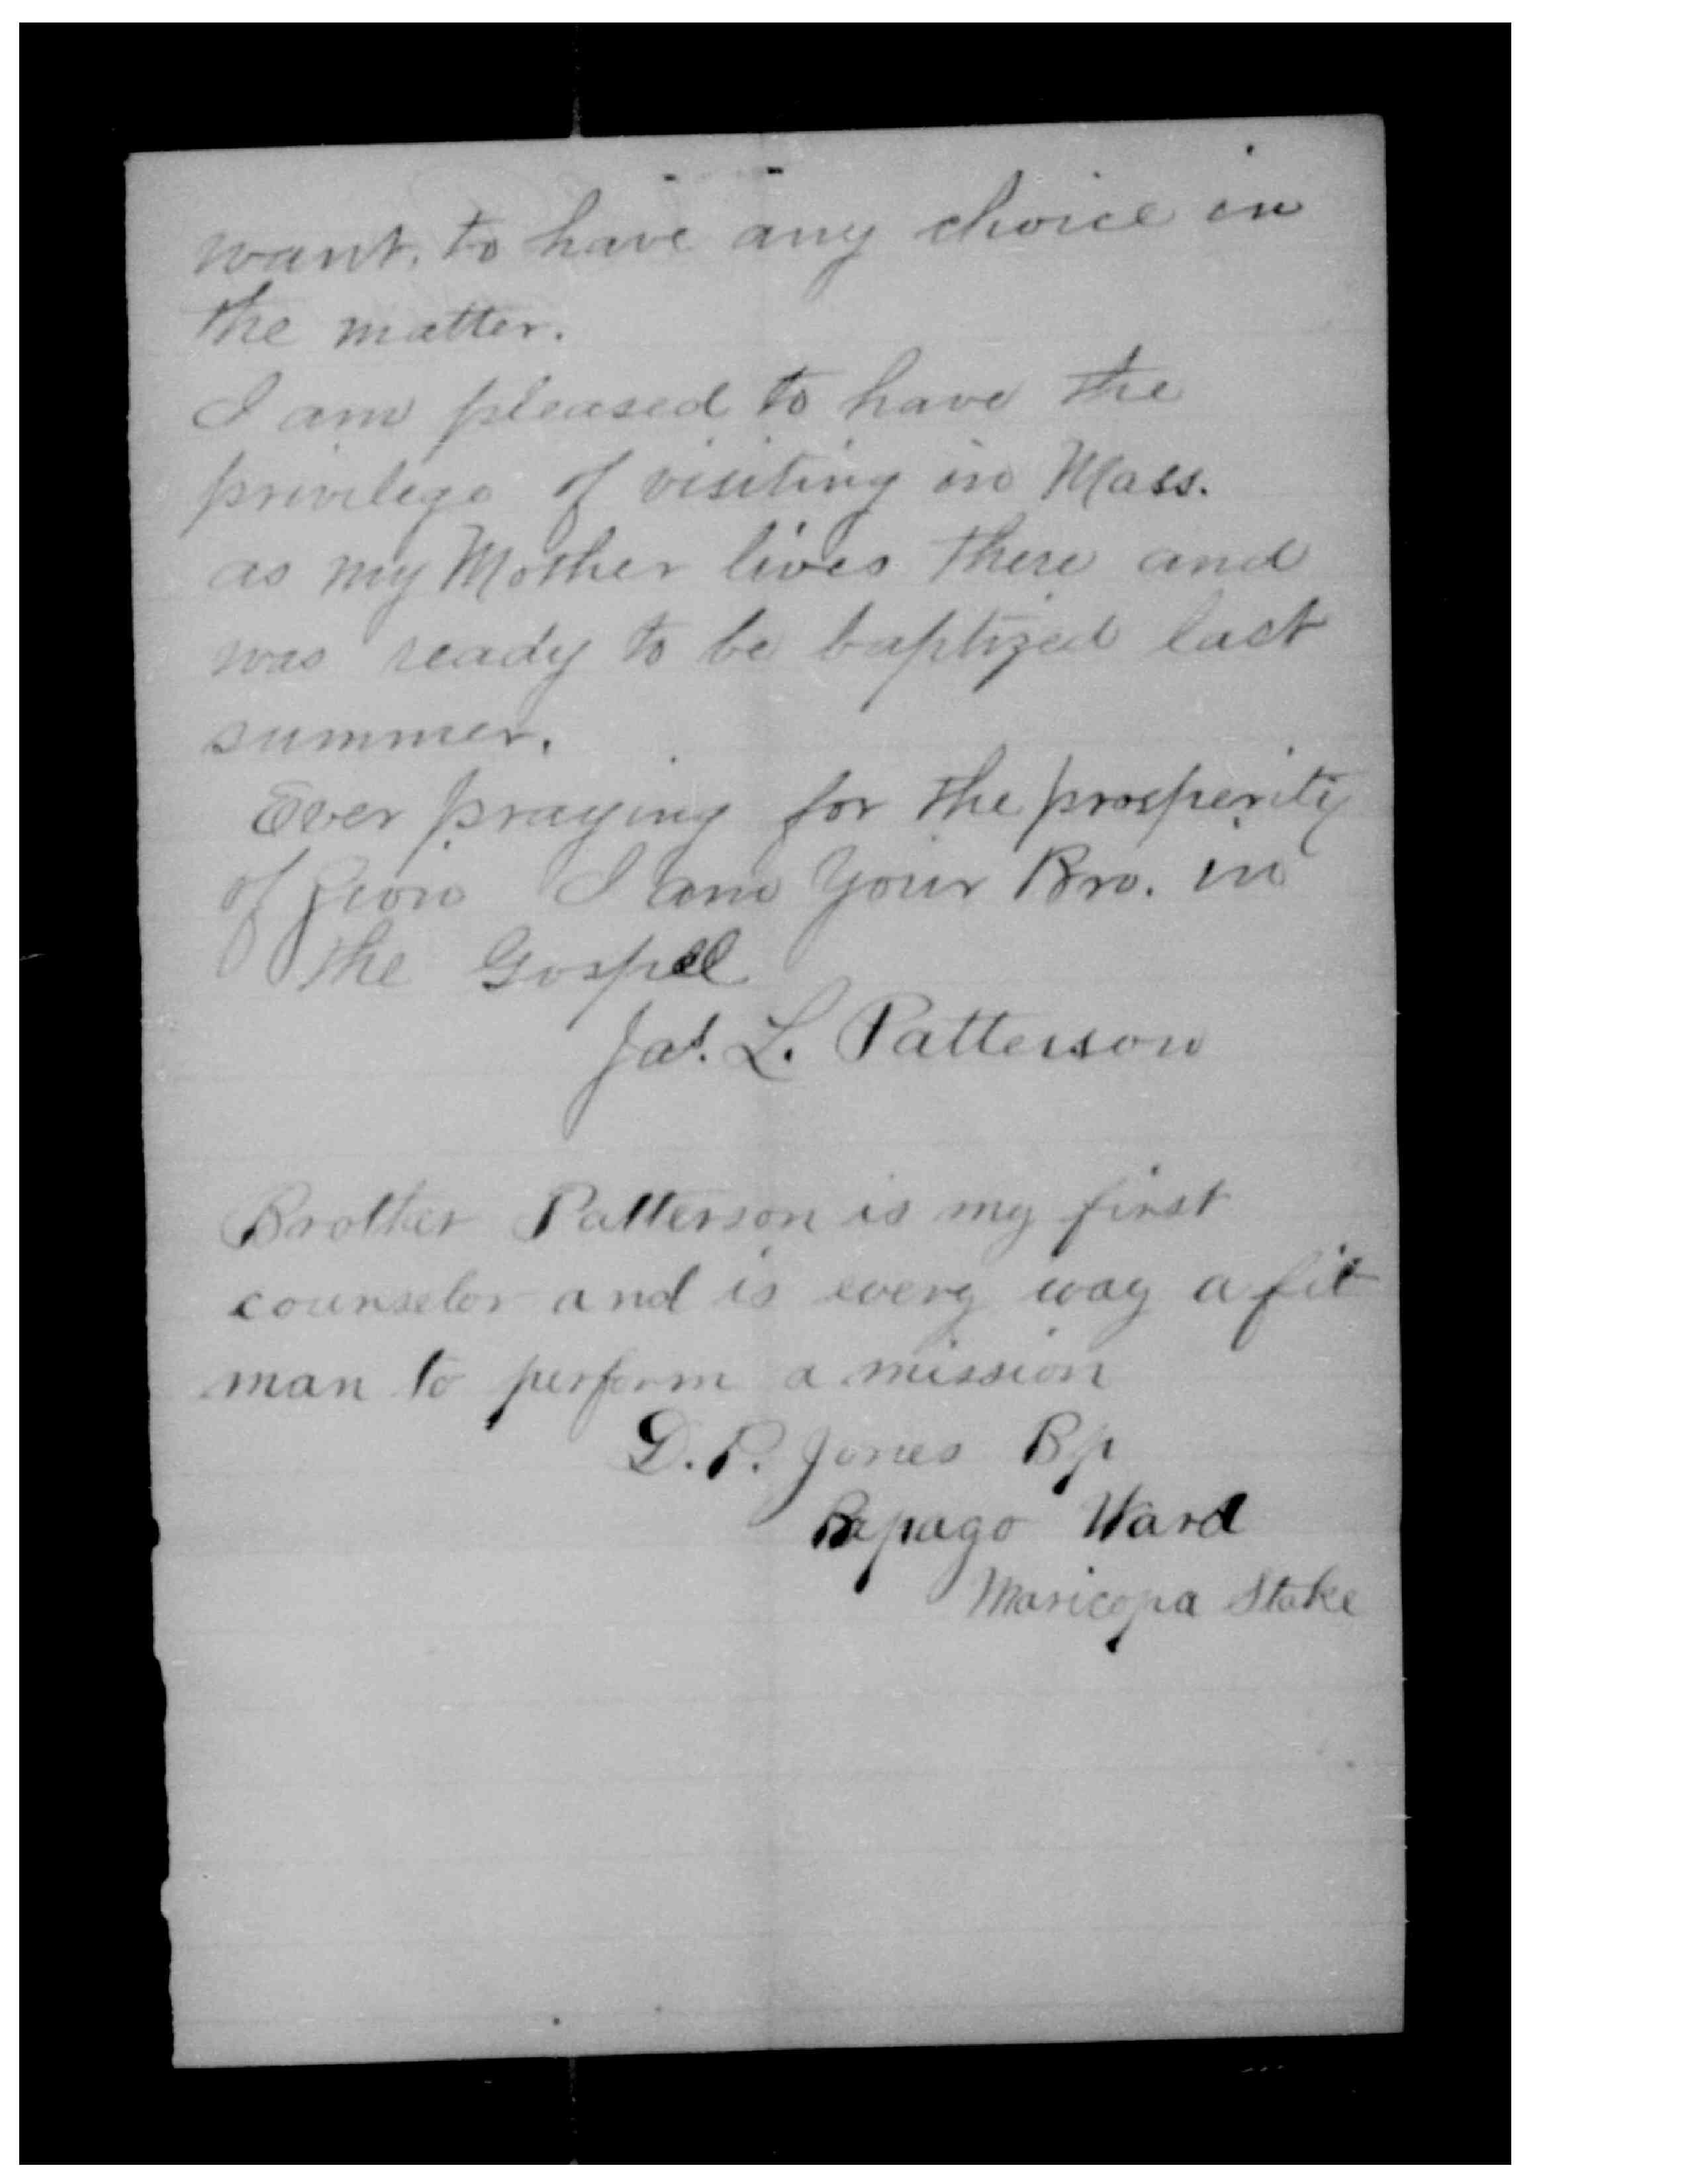 want, to have any choice in
the matter.
I am pleased to have the
privilege of visiting in Mass.
as my Mother lives there and
was ready to be baptized last
summer.
Ever praying for the prosperity
of Zion I am Your Bro. in
the Gospel
Jas. L. Patterson
Brother Patterson is my first
counselor and is every way a fit
man to perform a mission
D. P. Jones Bp
Papago Ward
Maricopa Stake